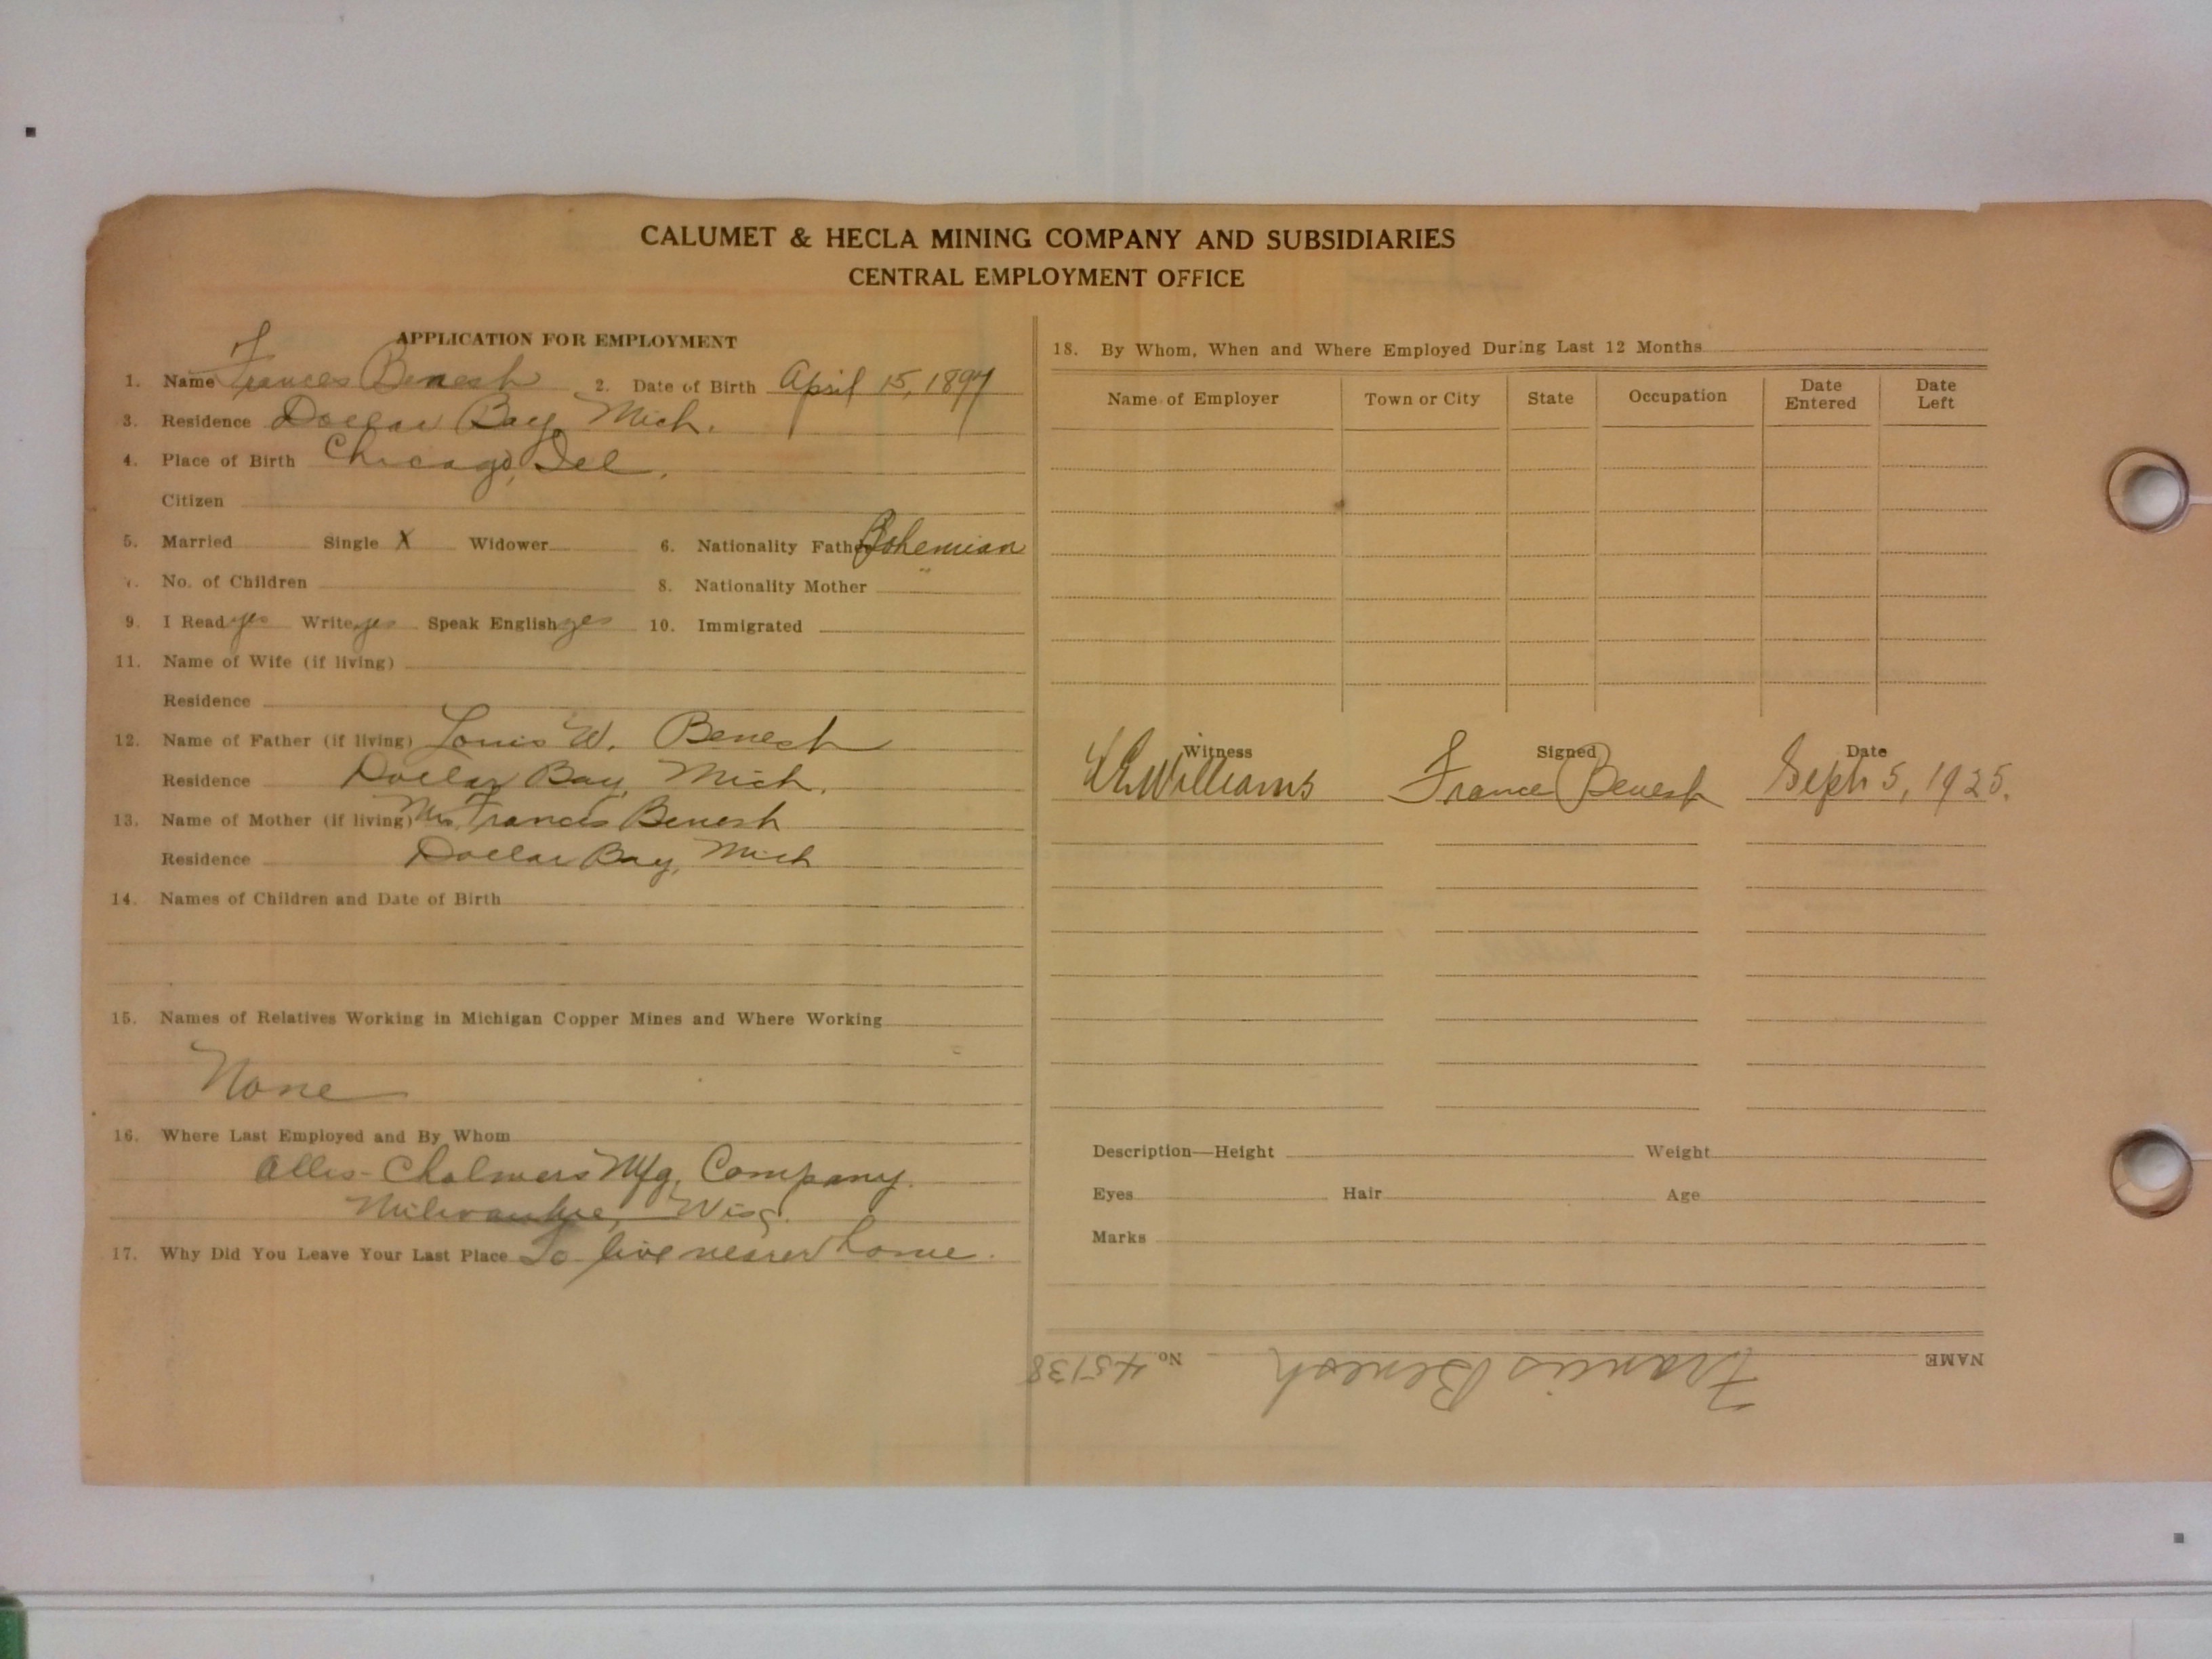 CALUMET & HECLA MINING COMPANY AND SUBSIDIARIES
CENTRAL EMPLOYMENT OFFICE
APPLICATION FOR EMPLOYMENT
1. Name Frances Benesh 2. Date of Birth April 15, 1897
3. Residence Dollar Bay, Mich.
4. Place of Birth Chicago, Ill.
Citizen
5. Married Single X Widower 6. Nationality Father Bohemian
7. No. of Children 8. Nationality Mother "
9. I Read yes Write yes Speak English yes 10. Immigrated
11. Name of Wife (if living)
Residence
12. Name of Father (if living) Louis W. Benesh
Residence Dollar Bay, Mich.
13. Name of Mother (if living) Mrs. Francis Benesh
Residence Dollar Bay, Mich
14. Names of Children and Date of Birth
15. Names of Relatives Working in Michigan Copper Mines and Where Working
None
16. Where Last Employed and By Whom
Allis-Chalmers Mfg. Company.
Milwaukee, Wisc.
17. Why Did You Leave Your Last Place To live nearer home.
18. By Whom, When and Where Employed During Last 12 Months
Name of Employer Town or City State Occupation Date Entered Date Left
Witness Signed Date
Williams France Benesh Sept 5, 1925.
Description—Height Weight
Eyes Hair Age
Marks
NAME Francis Benesh No. 45138